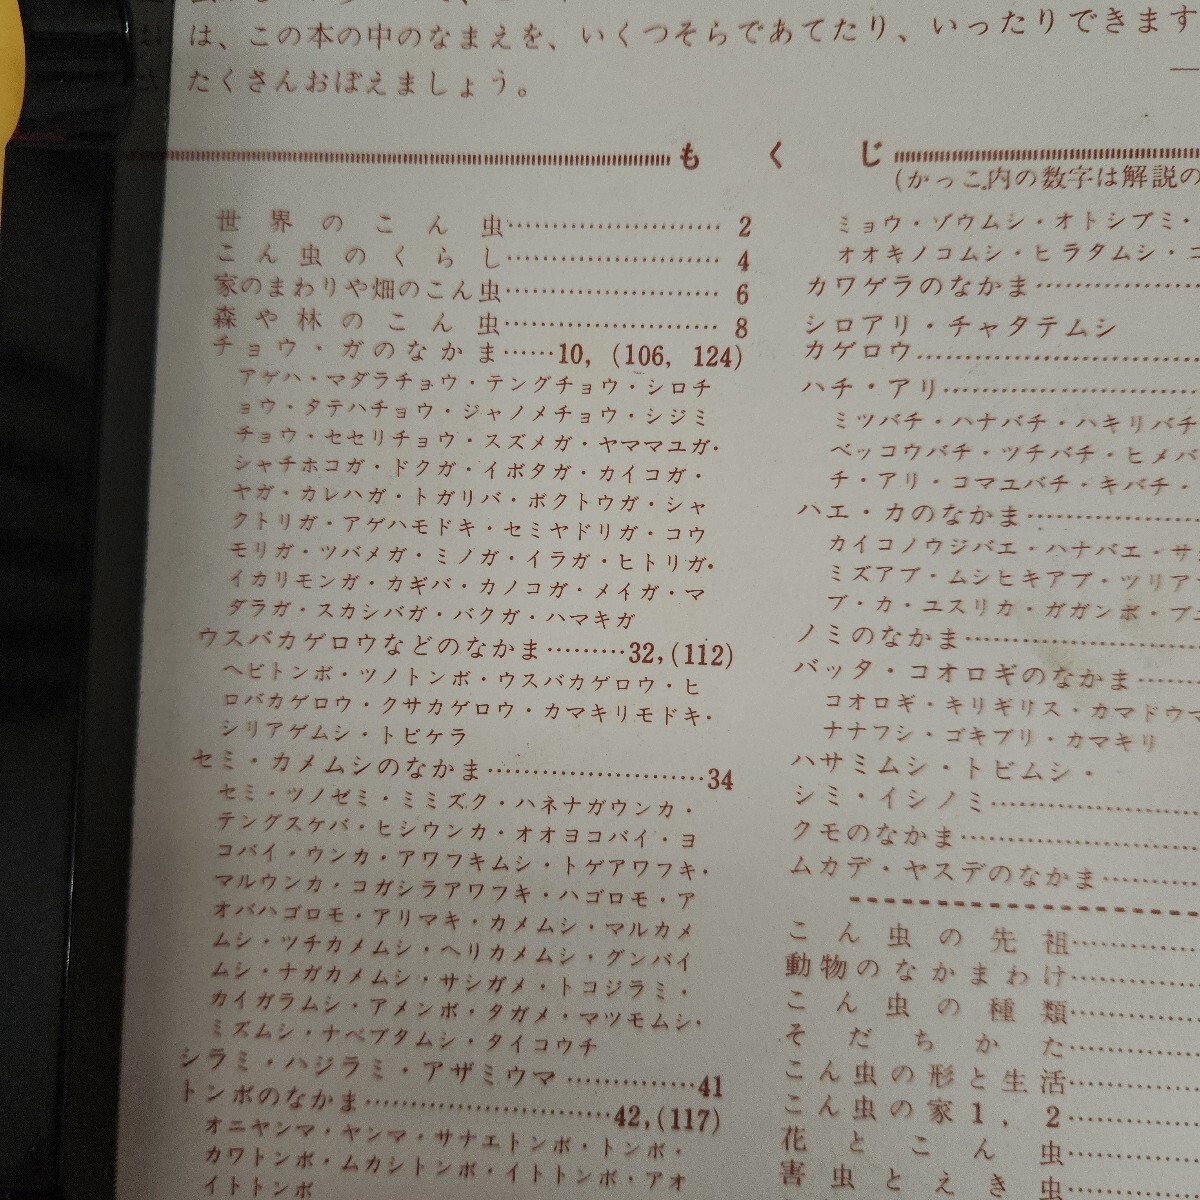 は、この本の中のなまえを、いくつそらであてたり、いったりできます
たくさんおぼえましょう。
もくじ
(かっこ内の数字は解説の
世界のこん虫……………………2
こん虫のくらし……………………4
家のまわりや畑のこん虫……………………6
森や林のこん虫……………………8
チョウ・ガのなかま……10,(106, 124)
アゲハ・マダラチョウ・テングチョウ・シロチ
ョウ・タテハチョウ・ジャノメチョウ・シジミ
チョウ・セセリチョウ・スズメガ・ヤママユガ・
シャチホコガ・ドクガ・イボタガ・カイコガ・
ヤガ・カレハガ・トガリバ・ボクトウガ・シャ
クトリガ・アゲハモドキ・セミヤドリガ・コウ
モリガ・ツバメガ・ミノガ・イラガ・ヒトリガ・
イカリモンガ・カギバ・カノコガ・メイガ・マ
ダラガ・スカシバガ・バクガ・ハマキガ
ウスバカゲロウなどのなかま………32,(112)
ヘビトンボ・ツノトンボ・ウスバカゲロウ・ヒ
ロバカゲロウ・クサカゲロウ・カマキリモドキ・
シリアゲムシ・トビケラ
セミ・カメムシのなかま……………………34
セミ・ツノゼミ・ミミズク・ハネナガウンカ・
テングスケバ・ヒシウンカ・オオヨコバイ・ヨ
コバイ・ウンカ・アワフキムシ・トゲアワフキ・
マルウンカ・コガシラアワフキ・ハゴロモ・ア
オバハゴロモ・アリマキ・カメムシ・マルカメ
ムシ・ツチカメムシ・ヘリカメムシ・グンバイ
ムシ・ナガカメムシ・サシガメ・トコジラミ・
カイガラムシ・アメンボ・タガメ・マツモムシ・
ミズムシ・ナベブタムシ・タイコウチ
シラミ・ハジラミ・アザミウマ……………41
トンボのなかま……………………42,(117)
オニヤンマ・ヤンマ・サナエトンボ・トンボ・
カワトンボ・ムカシトンボ・イトトンボ・アオ
イトトンボ
ミョウ・ゾウムシ・オトシブミ・
オオキノコムシ・ヒラタムシ・コ
カワゲラのなかま……………
シロアリ・チャタテムシ
カゲロウ……………………
ハチ・アリ……………………
ミツバチ・ハナバチ・ハキリバチ
ベッコウバチ・ツチバチ・ヒメバ
チ・アリ・コマユバチ・キバチ・
ハエ・カのなかま……………
カイコノウジバエ・ハナバエ・サ
ミズアブ・ムシヒキアブ・ツリア
ブ・カ・ユスリカ・ガガンボ・ブユ
ノミのなかま……………………
バッタ・コオロギのなかま……
コオロギ・キリギリス・カマドウマ
ナナフシ・ゴキブリ・カマキリ
ハサミムシ・トビムシ・
シミ・イシノミ……………………
クモのなかま……………………
ムカデ・ヤスデのなかま………
こん虫の先祖…………
動物のなかまわけ…………
こん虫の種類…………
そだちかた…………
こん虫の形と生活…………
こん虫の家1, 2…………
花とこん虫…………
害虫とえき虫…………